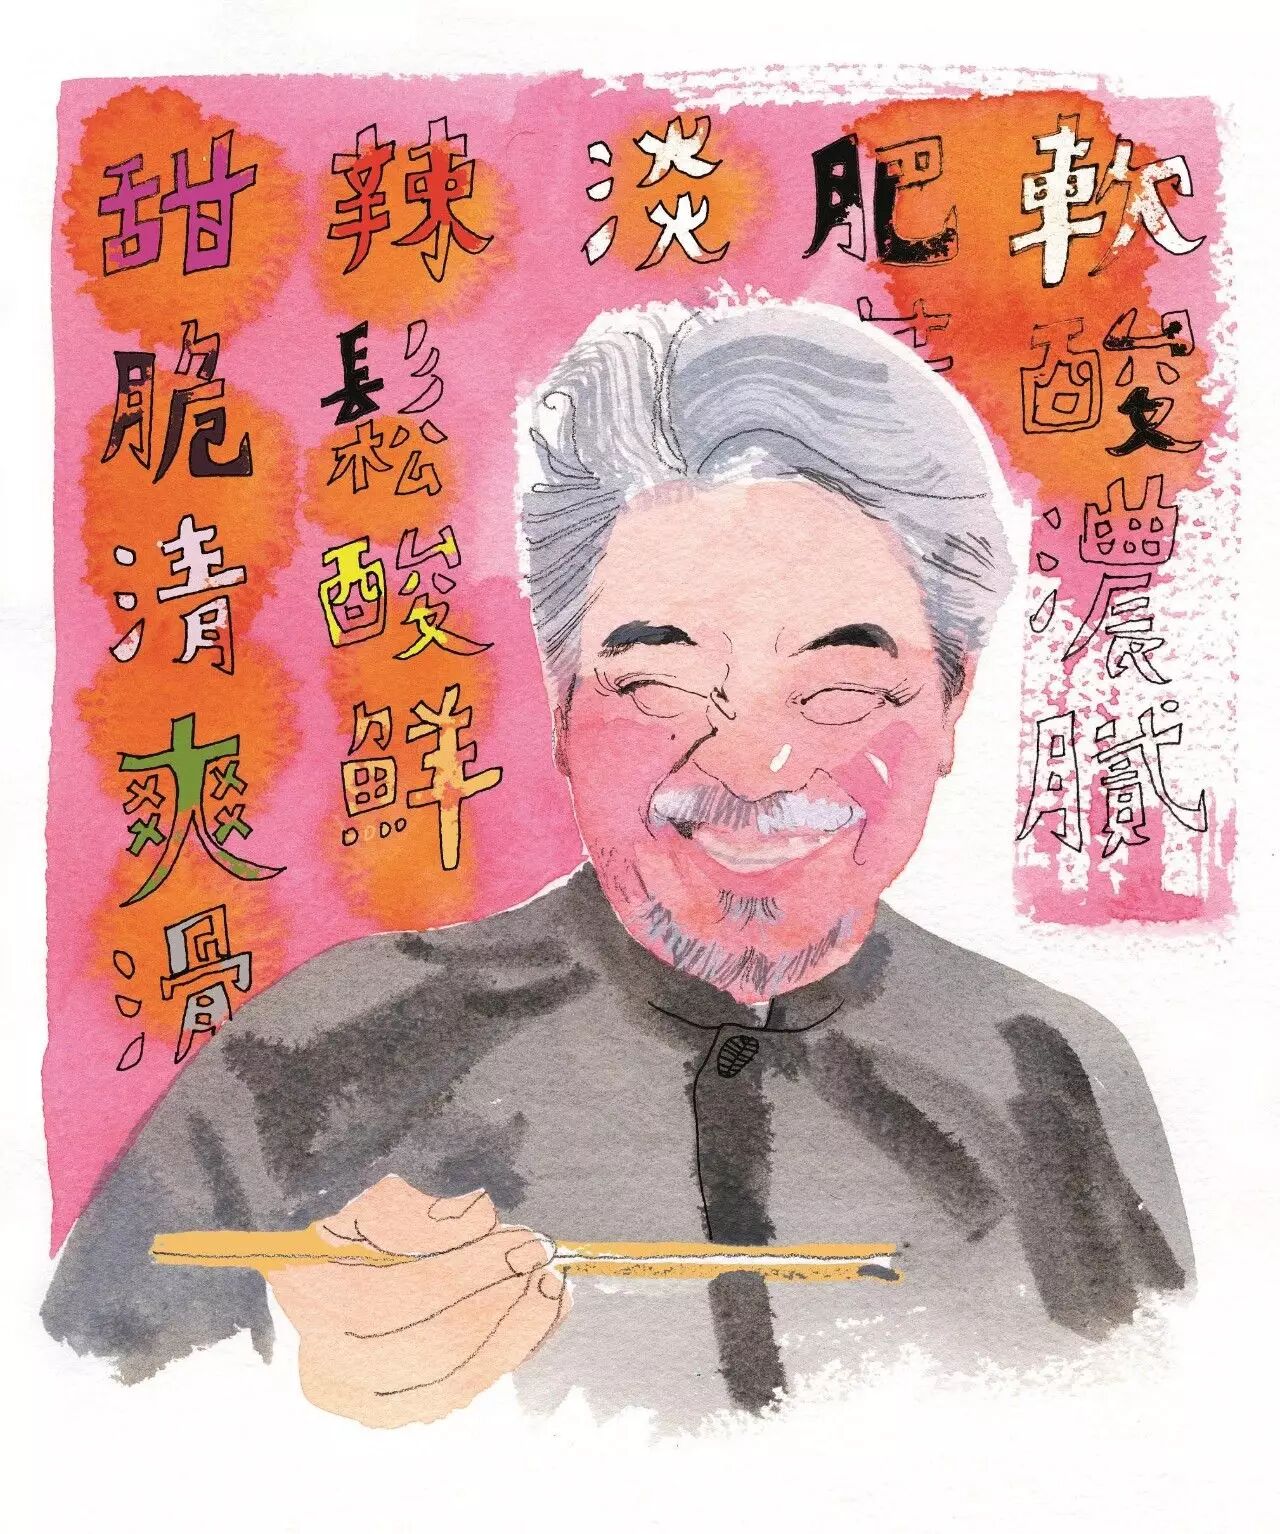 軟酸濃膩
肥
淡
辣鬆酸鮮
甜脆清爽滑